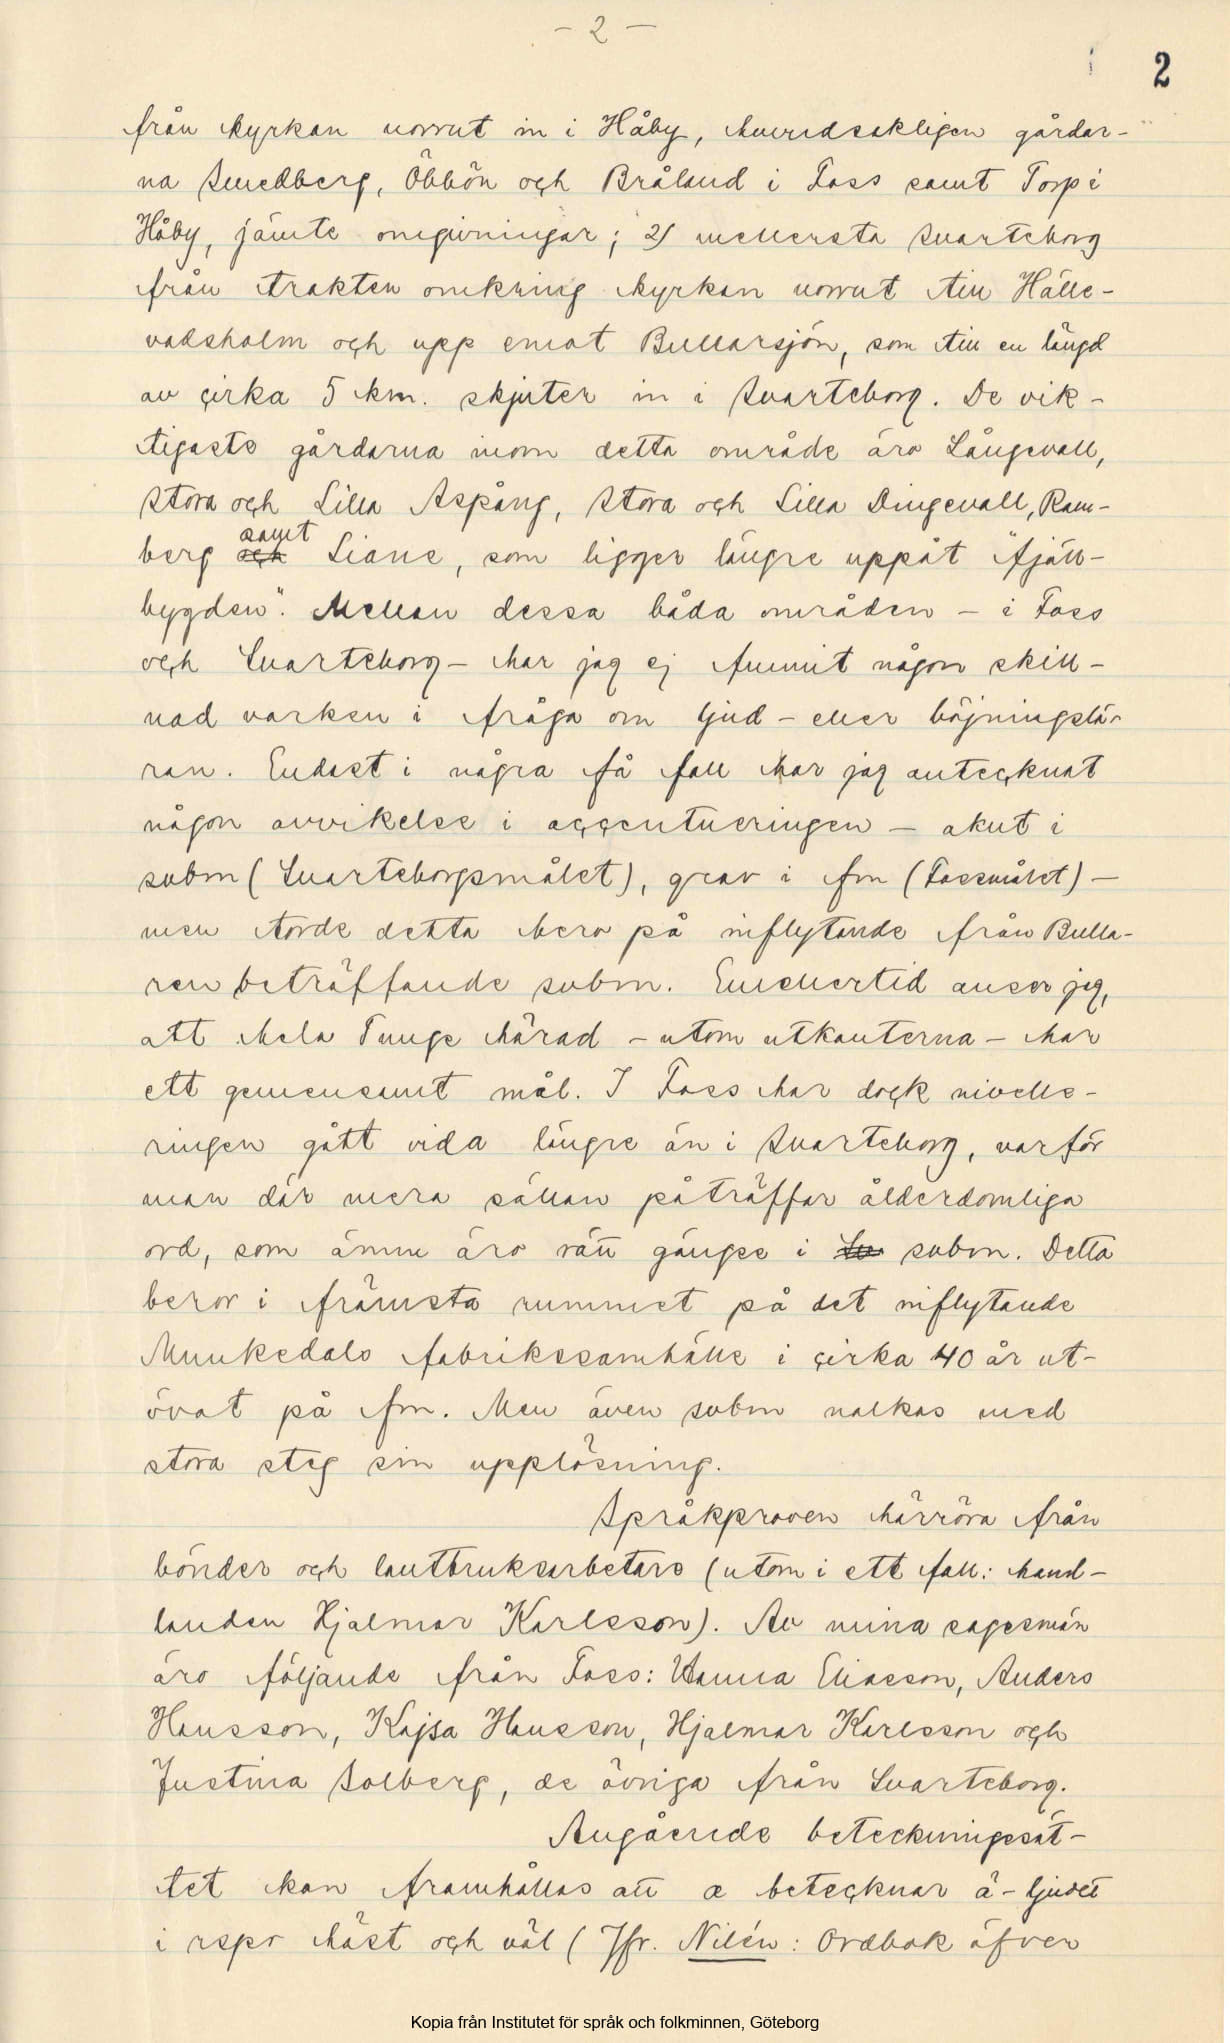 – 2 –
2
från kyrkan norrut in i Håby, huvudsakligen gårdar-
na Smedberg, Öbbön och Bråland i Foss samt Torp i
Håby, jämte omgivningar; 2) mellersta Svarteborg
från trakten omkring kyrkan norrut till Hälle-
vadsholm och upp emot Bullarsjön, som till en längd
av cirka 5 km. skjuter in i Svarteborg. De vik-
tigaste gårdarna inom detta område äro Långevall,
Stora och Lilla Aspång, Stora och Lilla Dingevall, Ram-
samt
berg och Liane, som ligger längre uppåt "fjäll-
bygden". Mellan dessa båda områden – i Foss
och Svarteborg – har jag ej funnit någon skill-
nad varken i fråga om ljud- eller böjningslä-
ran. Endast i några få fall har jag antecknat
någon avvikelse i accentueringen – akut i
svbm (Svarteborgsmålet), grav i fm (Fossmålet) –
men torde detta bero på inflytande från Bulla-
ren beträffande svbm. Emellertid anser jag,
att hela Tunge härad – utom utkanterna – har
ett gemensamt mål. I Foss har dock nivelle-
ringen gått vida längre än i Svarteborg, varför
man där mera sällan påträffar ålderdomliga
ord, som ännu äro rätt gängse i Sv svbm. Detta
beror i främsta rummet på det inflytande
Munkedals fabrikssamhälle i cirka 40 år ut-
övat på fm. Men även svbm nalkas med
stora steg sin upplösning.
Språkproven härröra från
bönder och lantbruksarbetare (utom i ett fall: hand-
landen Hjalmar Karlsson). Av mina sagesmän
äro följande från Foss: Hanna Eliasson, Anders
Hansson, Kajsa Hansson, Hjalmar Karlsson och
Justina Solberg, de övriga från Svarteborg.
Angående beteckningssät-
tet kan framhållas att æ betecknar ä-ljudet
i rspr häst och väl (Jfr. Nilén: Ordbok öfver
Kopia från Institutet för språk och folkminnen, Göteborg